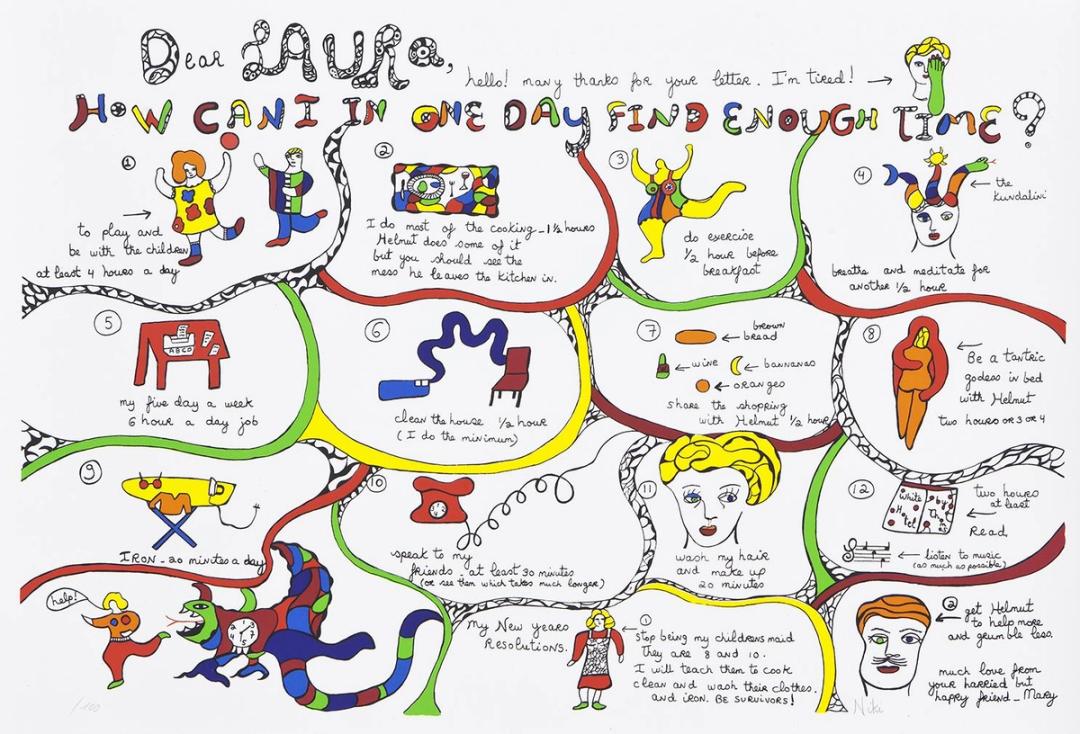 Dear LAURa,
hello! many thanks for your letter. I'm tired!
HoW CAN I IN ONE DAY FIND ENOUGH TIME?
①
to play and
be with the children
at least 4 hours a day
②
I do most of the cooking - 1½ hours
Helmut does some of it
but you should see the
mess he leaves the kitchen in.
③
do exercise
½ hour before
breakfast
④
the
Kundalini
breathe and meditate for
another ½ hour
⑤
ABCD
my five day a week
6 hour a day job
⑥
clean the house ½ hour
(I do the minimum)
⑦
brown
bread
wine
bannanas
oranges
share the shopping
with Helmut ½ hour
⑧
Be a tantric
godess in bed
with Helmut
two hours or 3 or 4
⑨
IRON - 20 minutes a day
⑩
speak to my
friends - at least 30 minutes
(or see them which takes much longer)
⑪
wash my hair
and make up
20 minutes
⑫
White
Hotel
by
Thomas
two hours
at least
Read
listen to music
(as much as possible)
help!
My New Years
Resolutions.
①
Stop being my childrens maid
They are 8 and 10.
I will teach them to cook
clean and wash their clothes.
and iron. BE SURVIVORS!
②
get Helmut
to help more
and grumble less.
much love from
your harried but
happy friend - Mary
/100
Niki